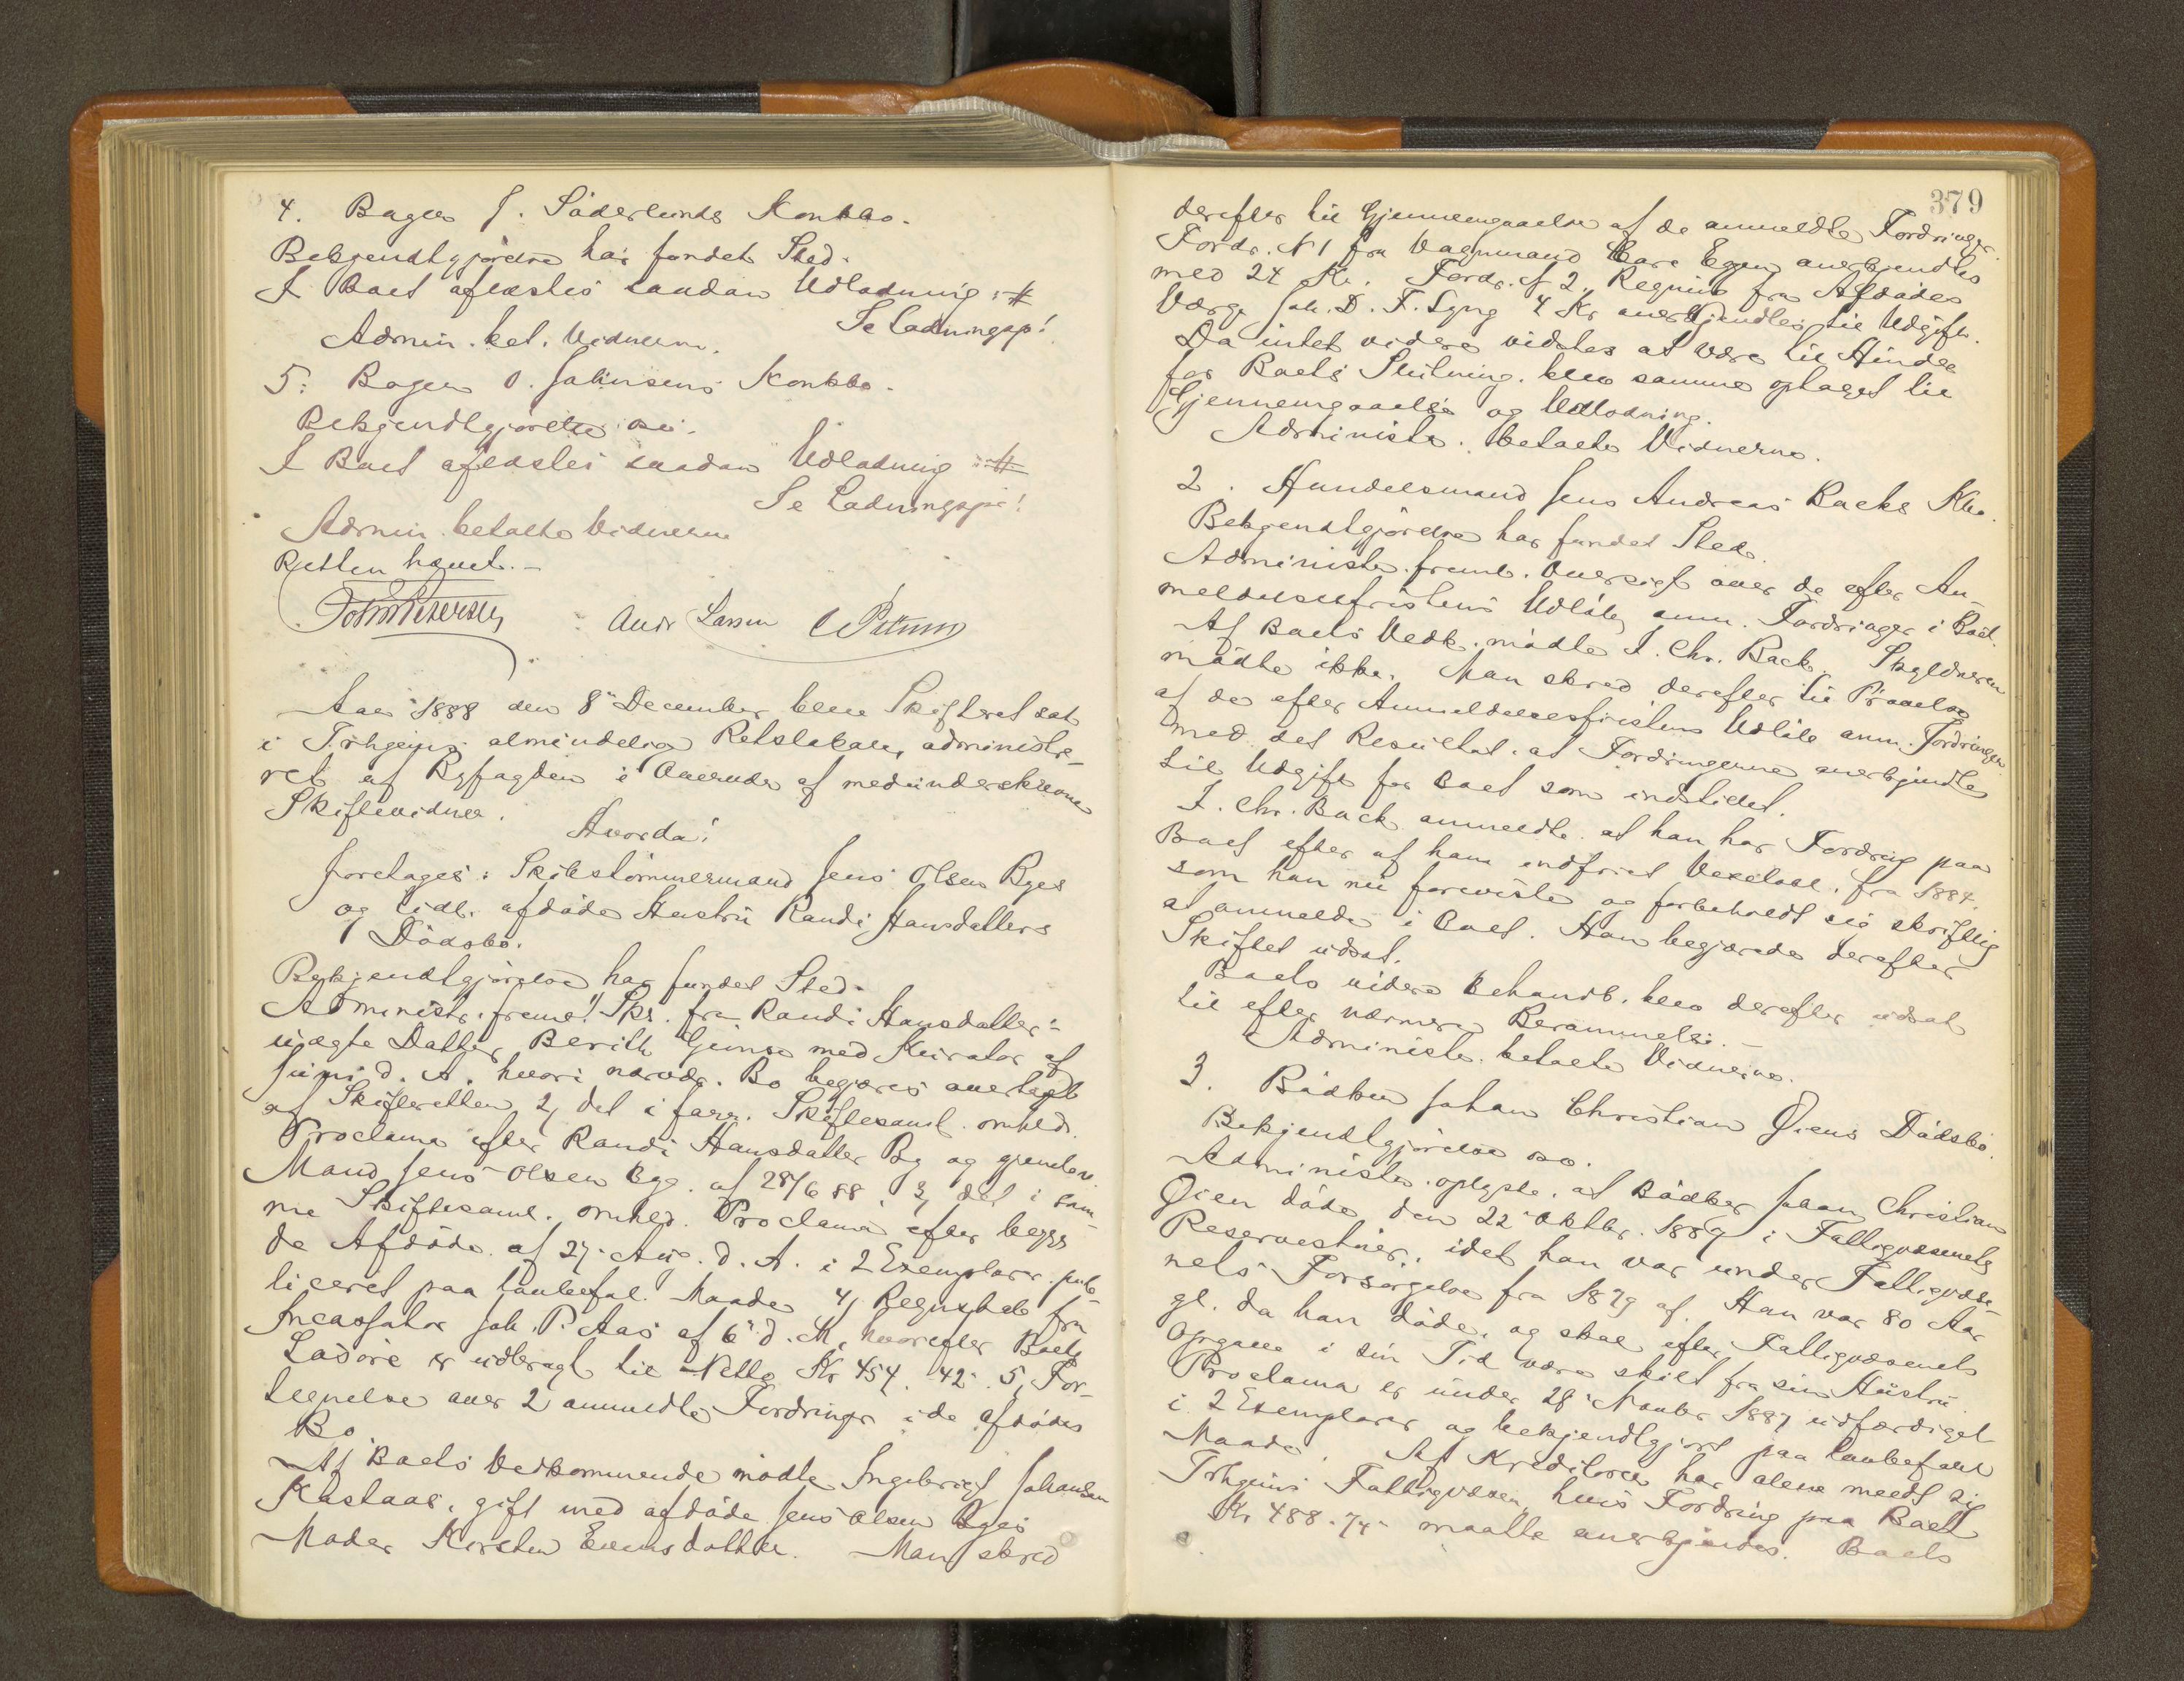 4. Bager J. Söderlunds Konkbo.
Bekjendtgjörelse har fundet Sted.
I Boet aflæstes saadan Udlodning: #
Se Lodningsp!
Admin. bet. Vidnerne.
5. Bager O. Johnsens Konkbo.
Bekjendtgjörelse osv.
I Boet aflæstes saadan Udlodning #
Se Lodningspr!
Admin. betalte Vidnerne
Retten hævet.
Andr Larsen
Aar 1888 den 8de December blev Skifteret sat
i Trhgeins almindelige Retslokale, administre-
ret af Byfogden i Overvær af medunderskrevne
Skiftevidner.
Hvorda:
foretages: Skibstömmermand Jens Olsen Byes
og tidl. afdöde Hustru Randi Hansdatters
Dödsbo.
Bekjendtgjörelse har fundet Sted.
Administr. freml. 1) Skr. fra Randi Hansdatters
uægte Datter Berith med Kurator af
Juni d. A. hvori nærvær. Bo begjæres overtaget
af Skifteretten 2, det i Skiftesaml. omhld.
Proclama efter Randi Hansdatter By og gjenlev.
Mand Jens Olsen Bye. af 28/6 88. 3, det i sam-
me Skiftesaml. omhld. Proclama efter begge
de Afdöde af 27. Aug. d. A. i 2 Exemplarer pub-
liceret paa lovbefal. Maade 4, Regnskab fra
Incassator Joh. P. Aas af 6' d. M., hvorefter Boets
Lösöre er udbragt til Netto Kr 454. 42. 5, For-
tegnelse over 2 anmeldte Fordringer i de afdödes
Bo.
Af Boets Vedkommende mödte Ingebrigt Johansen
Kastaas, gift med afdöde Jens Olsen Byes
Moder Kirsten Evensdatter. Man skred
379
derefter til Gjennemgaaelse af de anmeldte Fordringer.
Fordr. N 1 fra Vognmand anerkjendtes
med 24 Kr. Fordr. N 2, Regning fra Afdödes
Værge Joh. D. F. Lyng 4 Kr anerkjendtes til Udgift.
Da intet videre vidstes at være til Hinder
for Boets Slutning, blev samme optaget til
Gjennemgaaelse og Udlodning.
Administr. betalte Vidnerne.
2. Handelsmand Jens Andreas Backs Kbo.
Bekjendtgjörelse har fundet Sted.
Administr. freml. Oversigt over de efter An-
meldelsesfristens Udlöb anm. Fordringer i Boet.
Af Boets Vedk. mödte I. Chr. Back. Skyldneren
mödte ikke. Man skred derefter til Prövelse
af de efter Anmeldelsesfristens Udlöb anm. Fordringer
med det Resultat, at Fordringerne anerkjendtes
til Udgift for Boet som indstillet.
I. Chr. Back anmeldte, at han har Fordring paa
Boet efter af ham indfriet Vexelobl. fra 1884.
som han nu foreviste og forbeholdt sig skriftlig
at anmelde i Boet. Han begjærede derefter
Skiftet udsat.
Boets videre Behandl. blev derefter udsat
til efter nærmere Berammelse.
Administr. betalte Vidnerne.
3. Bödker Johan Christian Öiens Dödsbo.
Bekjendtgjörelse osv.
Administr. oplyste, at Bödker Johan Christian
Öien döde den 22' Oktbr. 1887 i Fattigvæsenets
idet han var under Fattigvæse-
nets Forsörgelse fra 1879 af. Han var 80 Aar
gl. da han döde, og skal efter Fattigvæsenets
Opgave i sin Tid være skilt fra sin Hustru.
Proclama er under 28' Novbr 1887 udfærdiget
i 2 Exemplarer og bekjendtgjort paa lovbefalet
Maade. Af Kreditorer har alene meldt sig
Trhgeins Fattigvæsen, hvis Fordring paa Boet
Kr 488.74 maatte anerkjendes. Boets